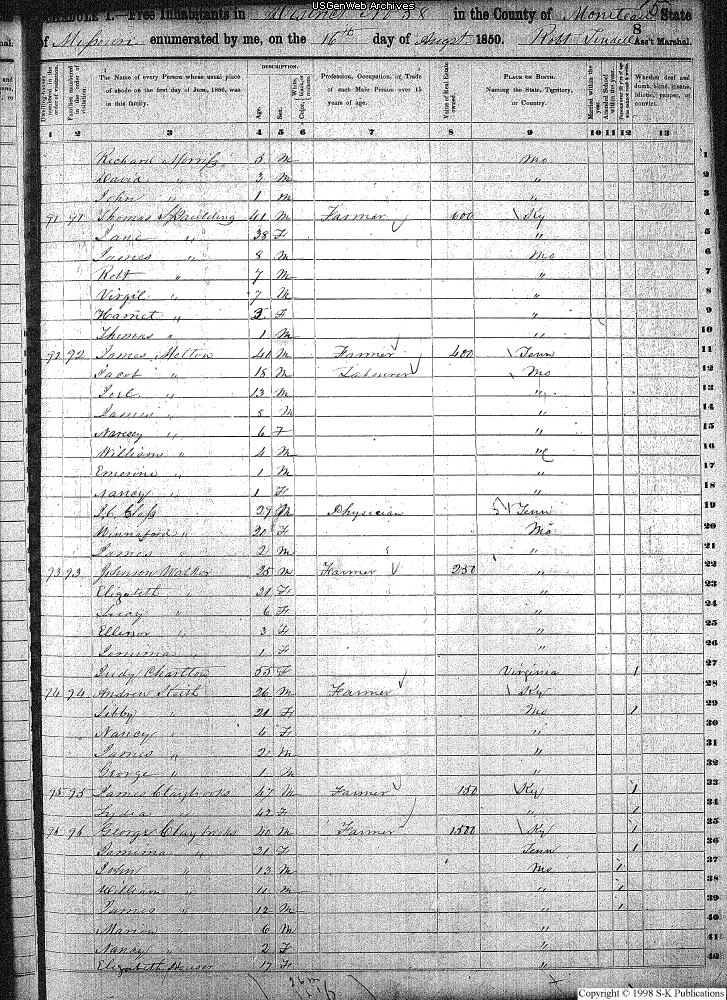 USGenWeb Archives
SCHEDULE I.—Free Inhabitants in District No 38 in the County of Moniteau State
of Missouri enumerated by me, on the 16th day of August 1850. Robt Tindell Ass't Marshal.
The Name of every Person whose usual place of abode on the first day of June, 1850, was in this family.
DESCRIPTION.
Age.
Sex.
Profession, Occupation, or Trade of each Male Person over 15 years of age.
Value of Real Estate owned.
PLACE OF BIRTH. Naming the State, Territory, or Country.
Whether deaf and dumb, blind, insane, idiotic, pauper, or convict.
1 2 3 4 5 6 7 8 9 10 11 12 13
Richard 5 M Mo 1
David " 3 M " 2
John " 1 M " 3
91 91 Thomas Spaulding 41 M Farmer 600 Ky 4
Jane " 38 F " 5
James " 8 M Mo 6
Robt " 7 M " 7
Virgil " 7 M " 8
Harriet " 2 F " 9
Thomas " 1 M " 10
92 92 James Melton 40 M Farmer 400 Tenn 11
Jacob " 18 M Labourer Mo 12
" 13 M " 13
James " 8 M " 14
Nancy " 6 F " 15
William " 4 M " 16
" 1 M " 17
Nancy " 1 F " 18
29 M Physician Tenn 19
Winnaford " 20 F Mo 20
James " 2 M " 21
93 93 Johnson Walker 25 M Farmer 250 " 22
Elizabeth " 21 F " 23
" 6 F " 24
Ellinor " 3 F " 25
Jemima " 1 F " 26
Judy Charlton 55 F Virginia 1 27
94 94 Andrew 26 M Farmer Ky 28
Libby " 21 F Mo 1 29
Nancy " 4 F " 30
James " 2 M " 31
George " 1 M " 32
95 95 James Claybrooks 47 M Farmer 150 Ky 1 33
Lydia " 42 F " 1
96 96 George Claybrooks 40 M Farmer 1500 Ky 1 35
Jemima " 31 F Tenn 1 36
John " 13 M Mo 1 37
William " 11 M " 1 38
James " 12 M " 1 39
Marion " 6 M " 40
Nancy " 2 F " 41
Elizabeth Houser 17 F " 42
Copyright © 1998 S-K Publications